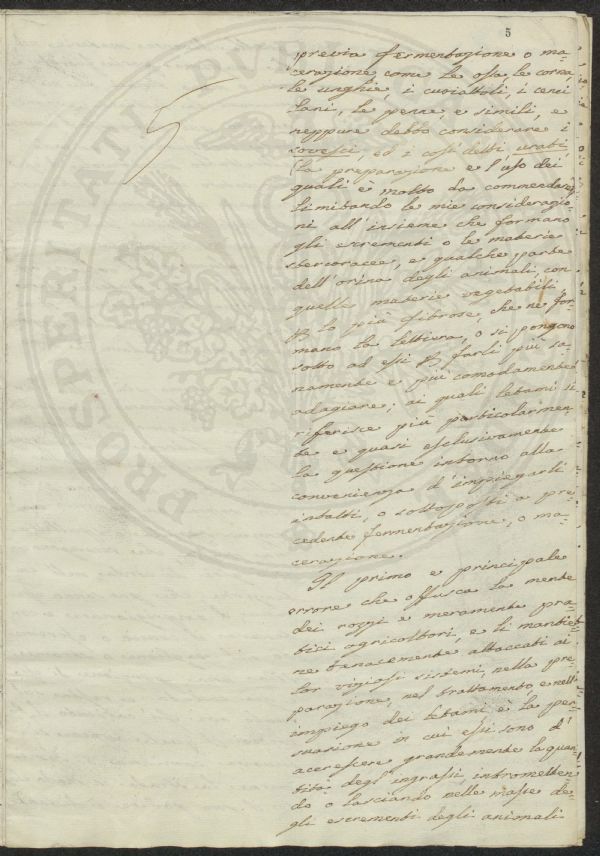 5
previa fermentazione o ma-
cerazione come le ossa, le corna
le unghie, i cuoiattoli, i cenci
lani, le penne, e simili, e
neppure debbo considerare i
sovesci, ed i così detti, urati
(la preparazione e l'uso dei
quali è molto da commendare)
limitando le mie considerazio-
ni all'insieme che formano
gli escrementi o le materie
stercoracee, e qualche parte
dell'orina degli animali, con
quelle materie vegetabili
lo più fibrose, che ne for-
mano la lettiera, o si pongono
sotto ad essi farli più sa-
namente e più comodamente
adagiare; ai quali letami si
riferisce più particolarmen-
te e quasi esclusivamente
la questione intorno alla
convenienza d'impiegarli
intatti, o sottoposti a pre-
cedente fermentazione, o ma-
cerazione.
Il primo e principale
errore che offusca la mente
dei rozzi e meramente pra-
tici agricoltori, e li mantie-
ne tenacemente attaccati ai
lor viziosi sistemi, nella pre-
parazione, nel trattamento, e nell'
impiego dei letami è la per-
suasione in cui essi sono d'
accrescere grandemente la quan-
tità degl'ingrassi, intrometten-
do o lasciando nelle masse de-
gli escrementi degli animali
PROSPERITATI PUBLICAE